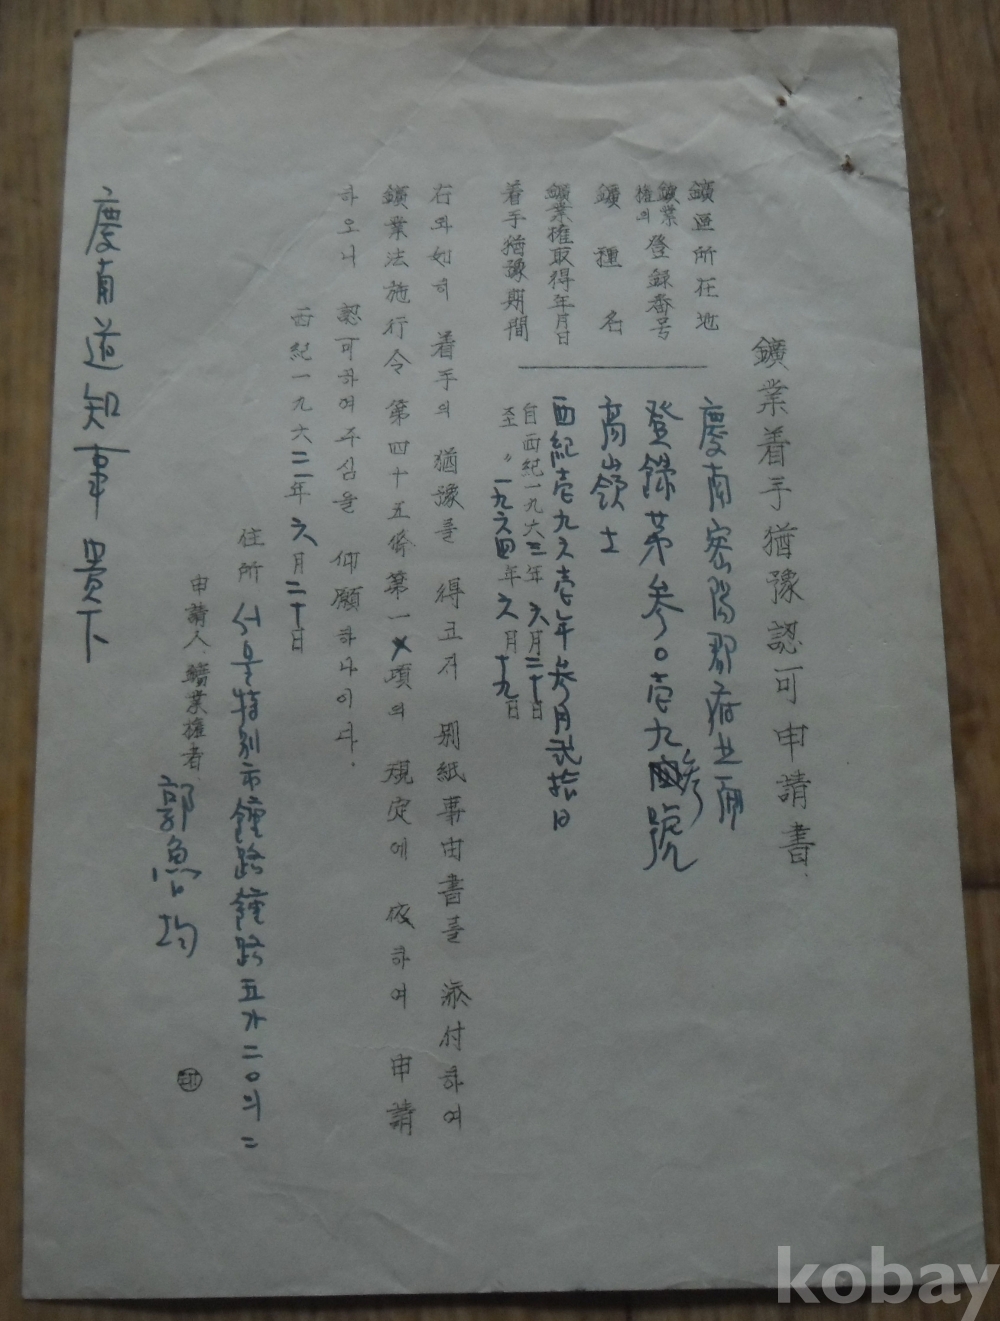 鑛業着手猶豫認可申請書
鑛區所在地 慶南密陽郡府北面
鑛業權의 登録番号 登錄第参〇壱九参號
鑛種名 高嶺土
鑛業權取得年月日 西紀壱九六壱年参月弐拾日
着手猶豫期間 自西紀一九六三年六月二十日
至 〃 一九六四年六月十九日
右와如히 着手의 猶豫를 得코저 別紙事由書를 添付하여
鑛業法施行令 第四十五條第一項의 規定에 依하여 申請
하오니 認可하여주심을 仰願하나이다.
西紀一九六三年六月二十日
住所 서울特別市鍾路鍾路五가二〇의二
申請人 鑛業權者 郭魯均 ㊞
慶南道知事 貴下
kobay